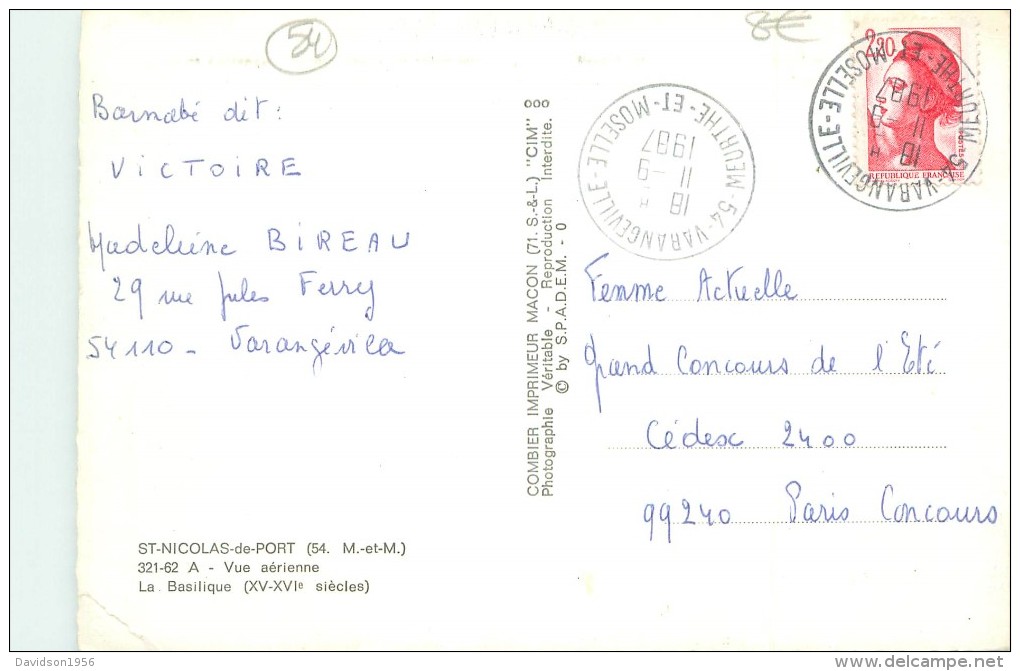 54
8€
Barnabé dit :
VICTOIRE
Madeleine BIREAU
29 rue Jules Ferry
54110 - Varangéville
ST-NICOLAS-de-PORT (54. M.-et-M.)
321-62 A - Vue aérienne
La Basilique (XV-XVIe siècles)
COMBIER IMPRIMEUR MACON (71. S.-&-L.) "CIM" ooo
Photographie Véritable - Reproduction Interdite. o
© by S.P.A.D.E.M. - 0
54-VARANGEVILLE-E
MEURTHE-ET-MOSELLE
18 H
11-9
1987
2,20
REPUBLIQUE FRANÇAISE
54-VARANGEVILLE-E
MEURTHE-ET-MOSELLE
18 H
11-9
1987
Femme Actuelle
Grand Concours de l'Eté
Cédex 2400
99240 Paris Concours
Davidson1956
www.delcampe.net